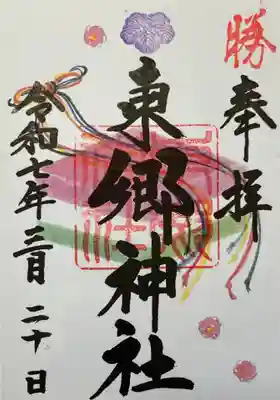 勝
奉拝
東郷神社
令和七年三月二十日